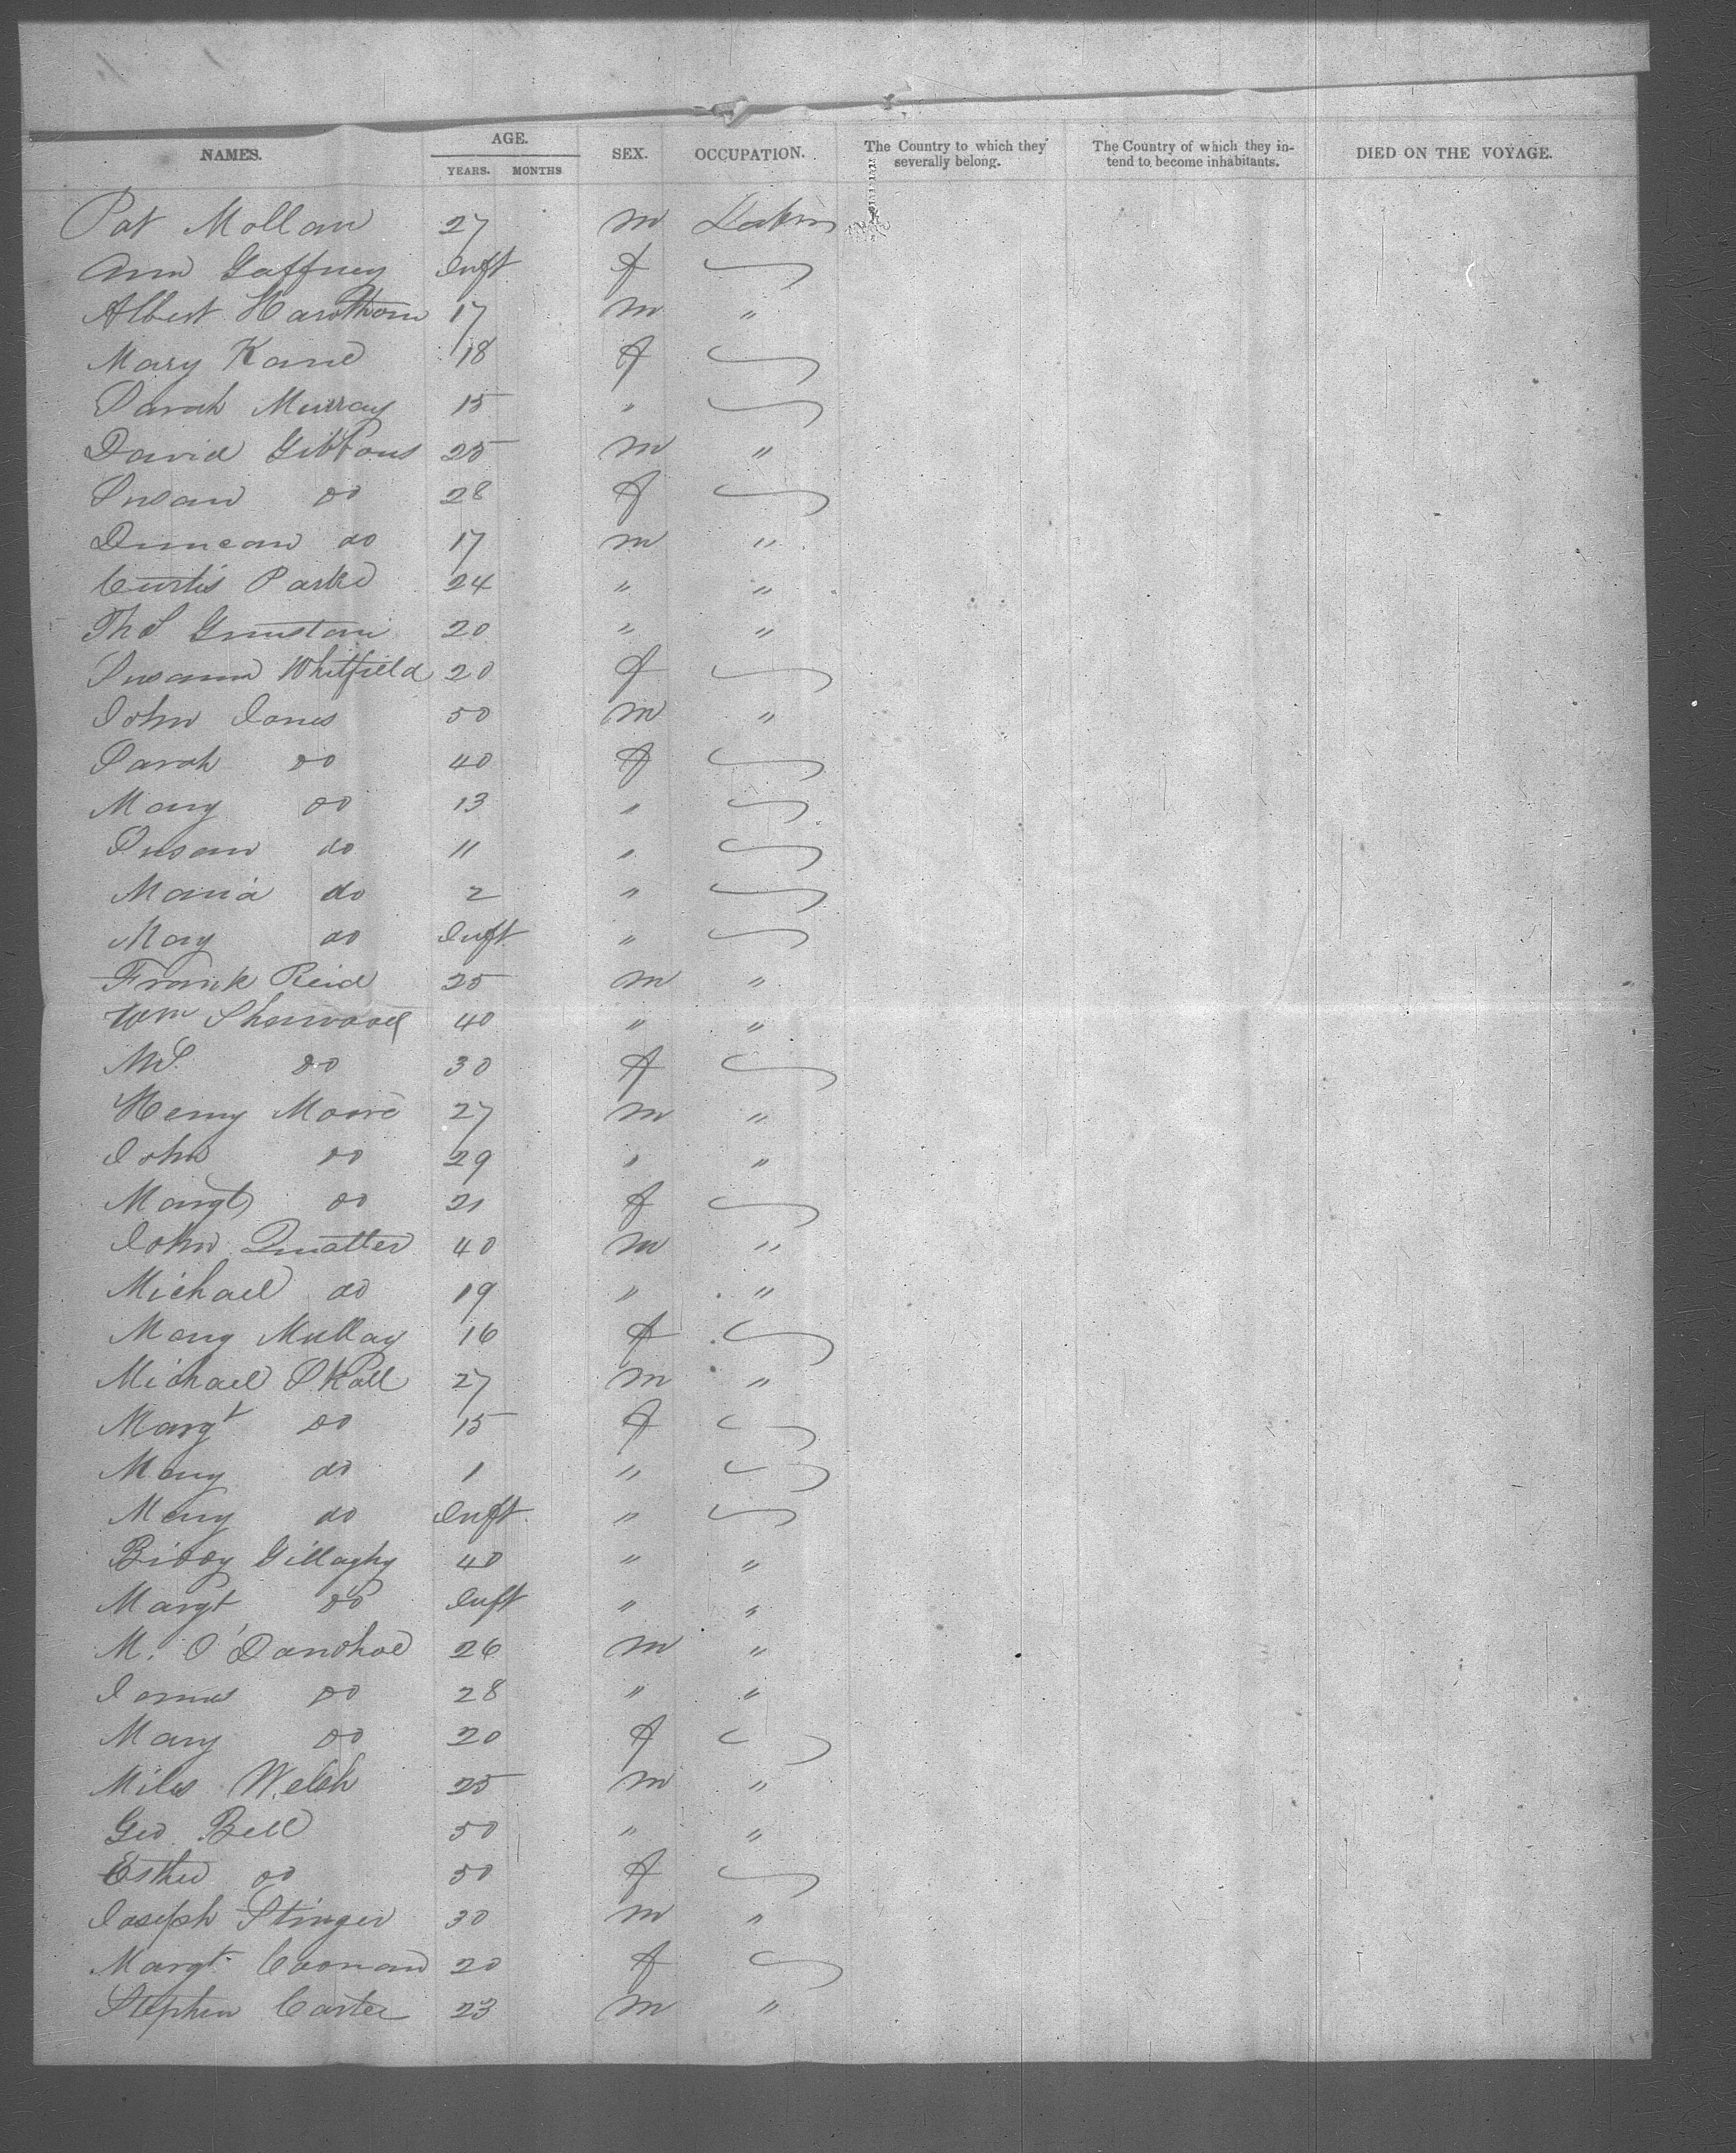 NAMES. AGE. SEX. OCCUPATION. The Country to which they severally belong. The Country of which they intend to become inhabitants. DIED ON THE VOYAGE.
YEARS. MONTHS
Pat Mollan 27 m
Ann Gaffney Inft f
Albert Hawthorn 17 m "
Mary Kane 18 f
Sarah Murray 15 "
David Gibbons 25 m "
Susan do 28 f
Duncan do 17 m "
Curtis Parke 24 " "
Thos 20 " "
Susann Whitfield 20 f
John Jones 50 m "
Sarah do 40 f
Mary do 13 "
Susan do 11 "
Maria do 2 "
May do Inft "
Frank Reid 25 m "
Wm Sherwood 40 " "
Mrs do 30 f
Henry Moore 27 m "
John do 29 " "
Margt do 21 f
John 40 m "
Michael do 19 " "
Mary 16 f
Michael 27 m "
Margt do 15 f
Mary do 1 "
Mary do Inft "
Biddy 40 " "
Margt do Inft " "
M. O'Donohoe 26 m "
James do 28 " "
Mary do 20 f
Miles Welsh 25 m "
Geo Bell 50 " "
Esther do 50 f
Joseph Stinger 30 m "
Margt Coonan 20 f
Stephen Carter 23 m "